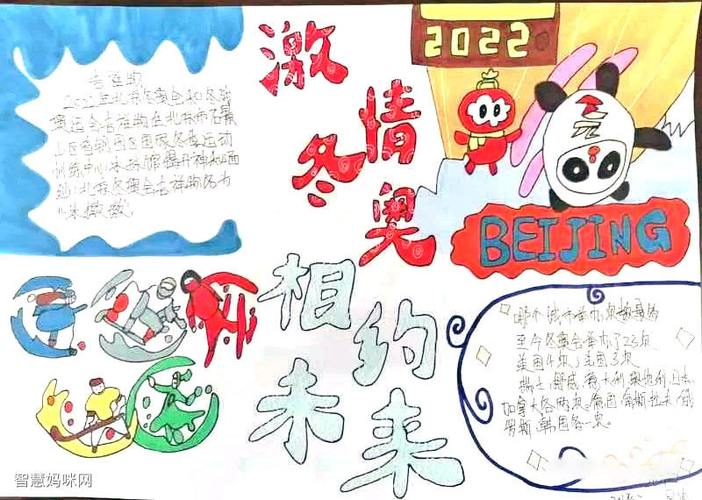 吉祥物
2022年北京冬奥会和冬残
奥运会吉祥物在北京市石景
山区首钢园区国家冬季运动
训练中心
北京冬奥会吉祥物名为
激情
冬奥
相约
未来
2022
BEIJING
哪个城市举办次数最多
至今冬奥会举办了23次
美国4次，法国3次
瑞士 挪威 意大利 奥地利 日本
加拿大各两次 德国 俄
罗斯 韩国各一次
智慧妈咪网